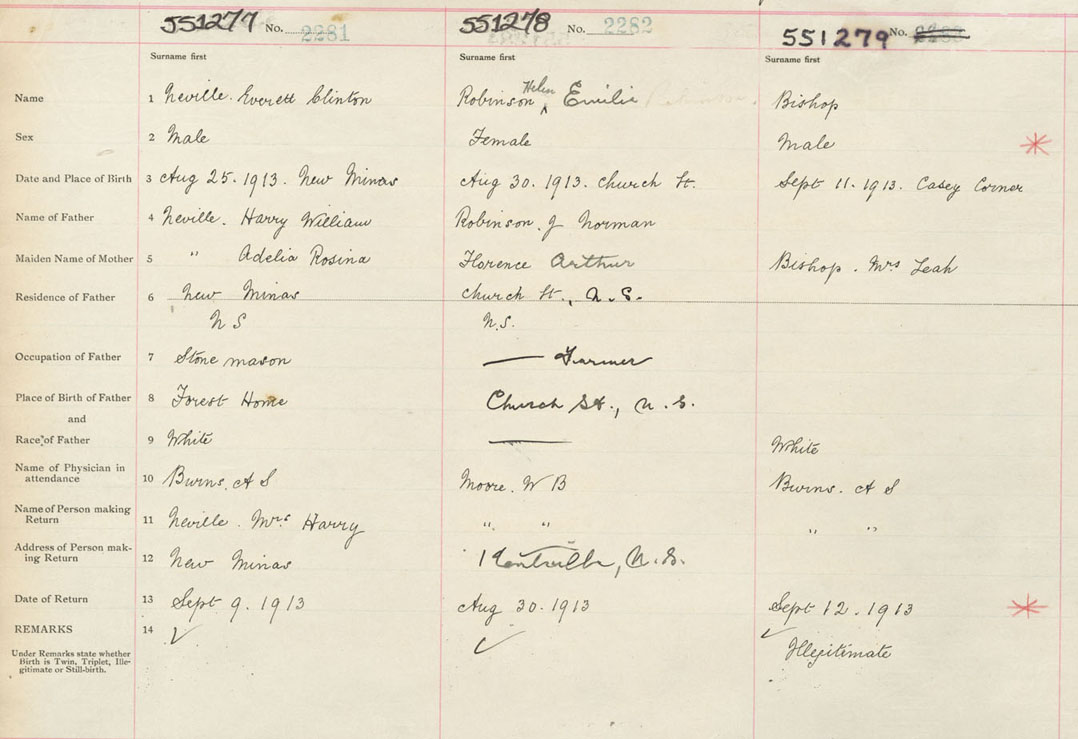 551277 No. 2281 551278 No. 2282 551279 No.
Surname first Surname first Surname first
Name 1 Neville. Everett Clinton Robinson Helen Emilie Robinson. Bishop
Sex 2 Male Female Male
Date and Place of Birth 3 Aug 25. 1913. New Minas Aug 30. 1913. Church St. Sept 11. 1913. Casey Corner
Name of Father 4 Neville. Harry William Robinson. J Norman
Maiden Name of Mother 5 " Adelia Rosina Florence Arthur Bishop. Mrs Leah
Residence of Father 6 New Minas Church St., N.S.
N S N.S.
Occupation of Father 7 Stone mason — Farmer
Place of Birth of Father 8 Forest Home Church St., N.S.
and
Race of Father 9 White — White
Name of Physician in
attendance 10 Burns. A S Moore. W B Burns. A S
Name of Person making
Return 11 Neville. Mrs Harry " " " "
Address of Person mak-
ing Return 12 New Minas Kentville, N.S.
Date of Return 13 Sept 9. 1913 Aug 30. 1913 Sept 12. 1913
REMARKS 14 ✓ ✓ ✓
Under Remarks state whether
Birth is Twin, Triplet, Ille-
gitimate or Still-birth.
Illegitimate